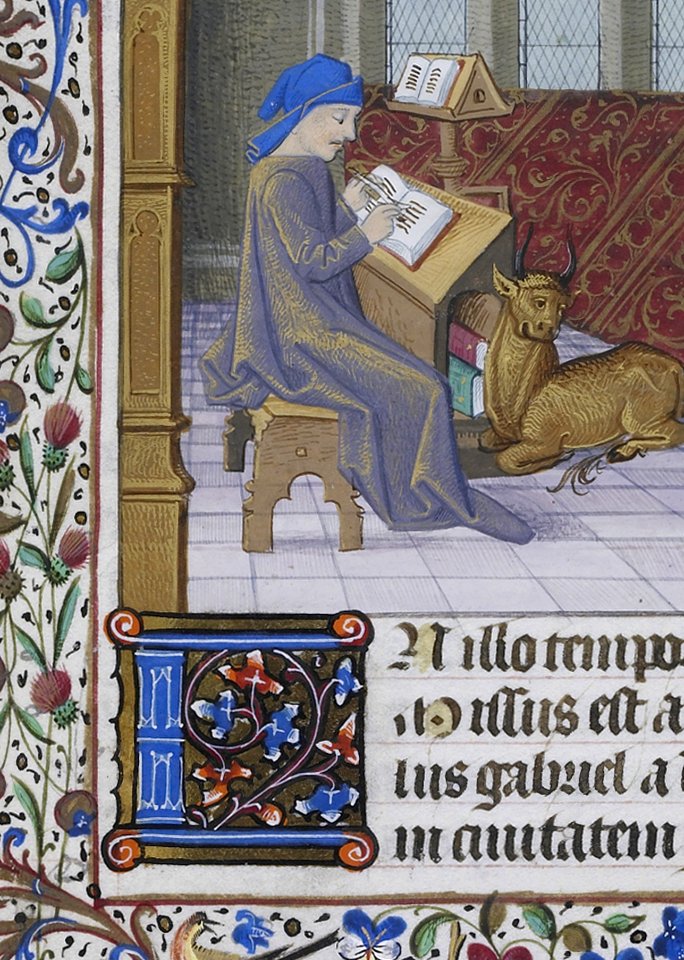 IN illo tempo
issus est a
lus gabriel a
in ciuitatem